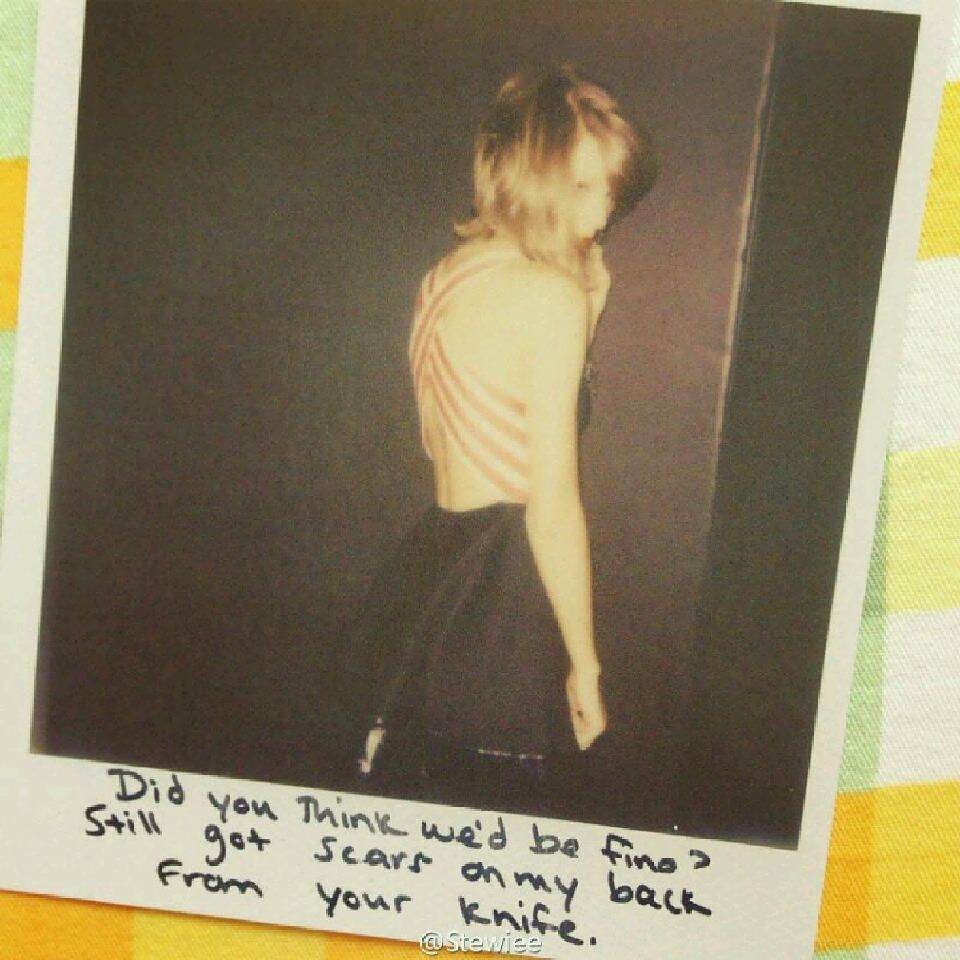 Did you think we'd be fine?
Still got scars on my back
From your knife.
@Stewiee